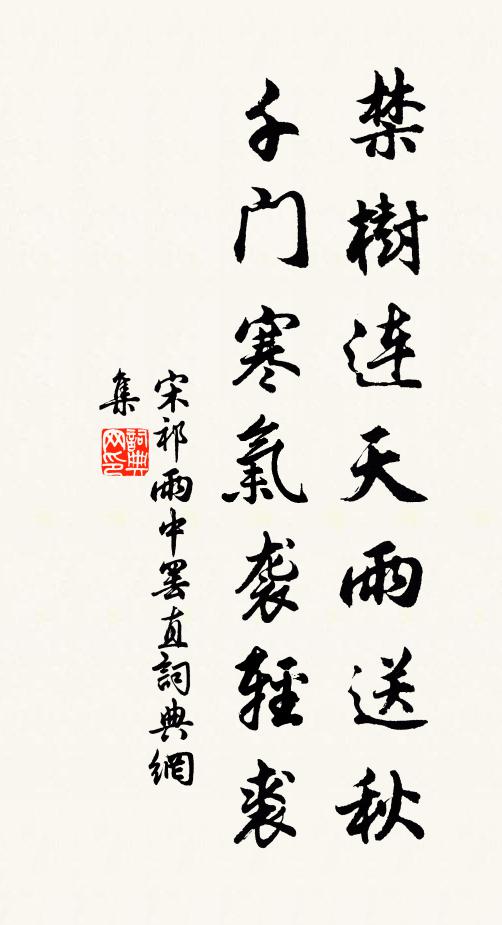 禁樹連天雨送秋
千門寒氣袭輕裘
宋祁雨中罢直詞典網
集
詞典网印